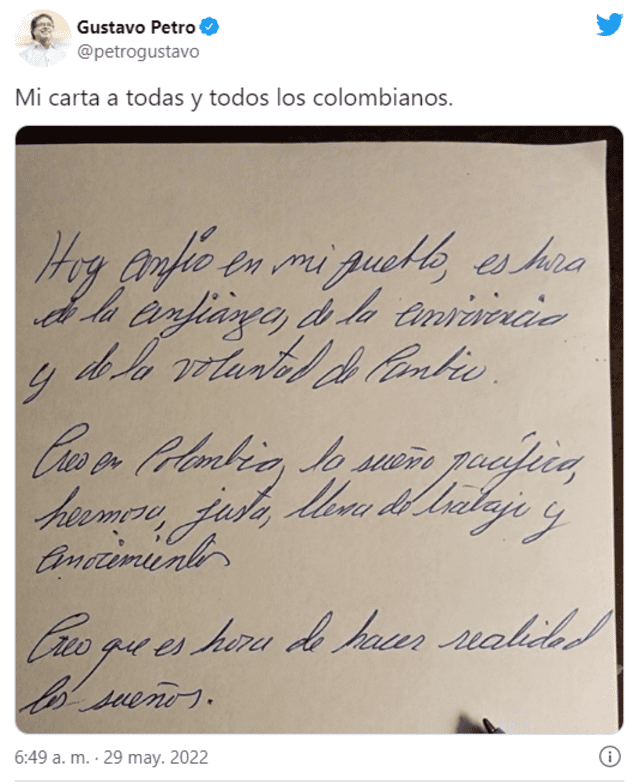 Gustavo Petro
@petrogustavo
Mi carta a todas y todos los colombianos.
Hoy confio en mi pueblo, es hora
de la confianza, de la convivencia
y de la voluntad de Cambio.
Creo en Colombia, la sueño pacífica,
hermosa, justa, llena de trabajo y
conocimiento
Creo que es hora de hacer realidad
los sueños.
6:49 a. m. · 29 may. 2022